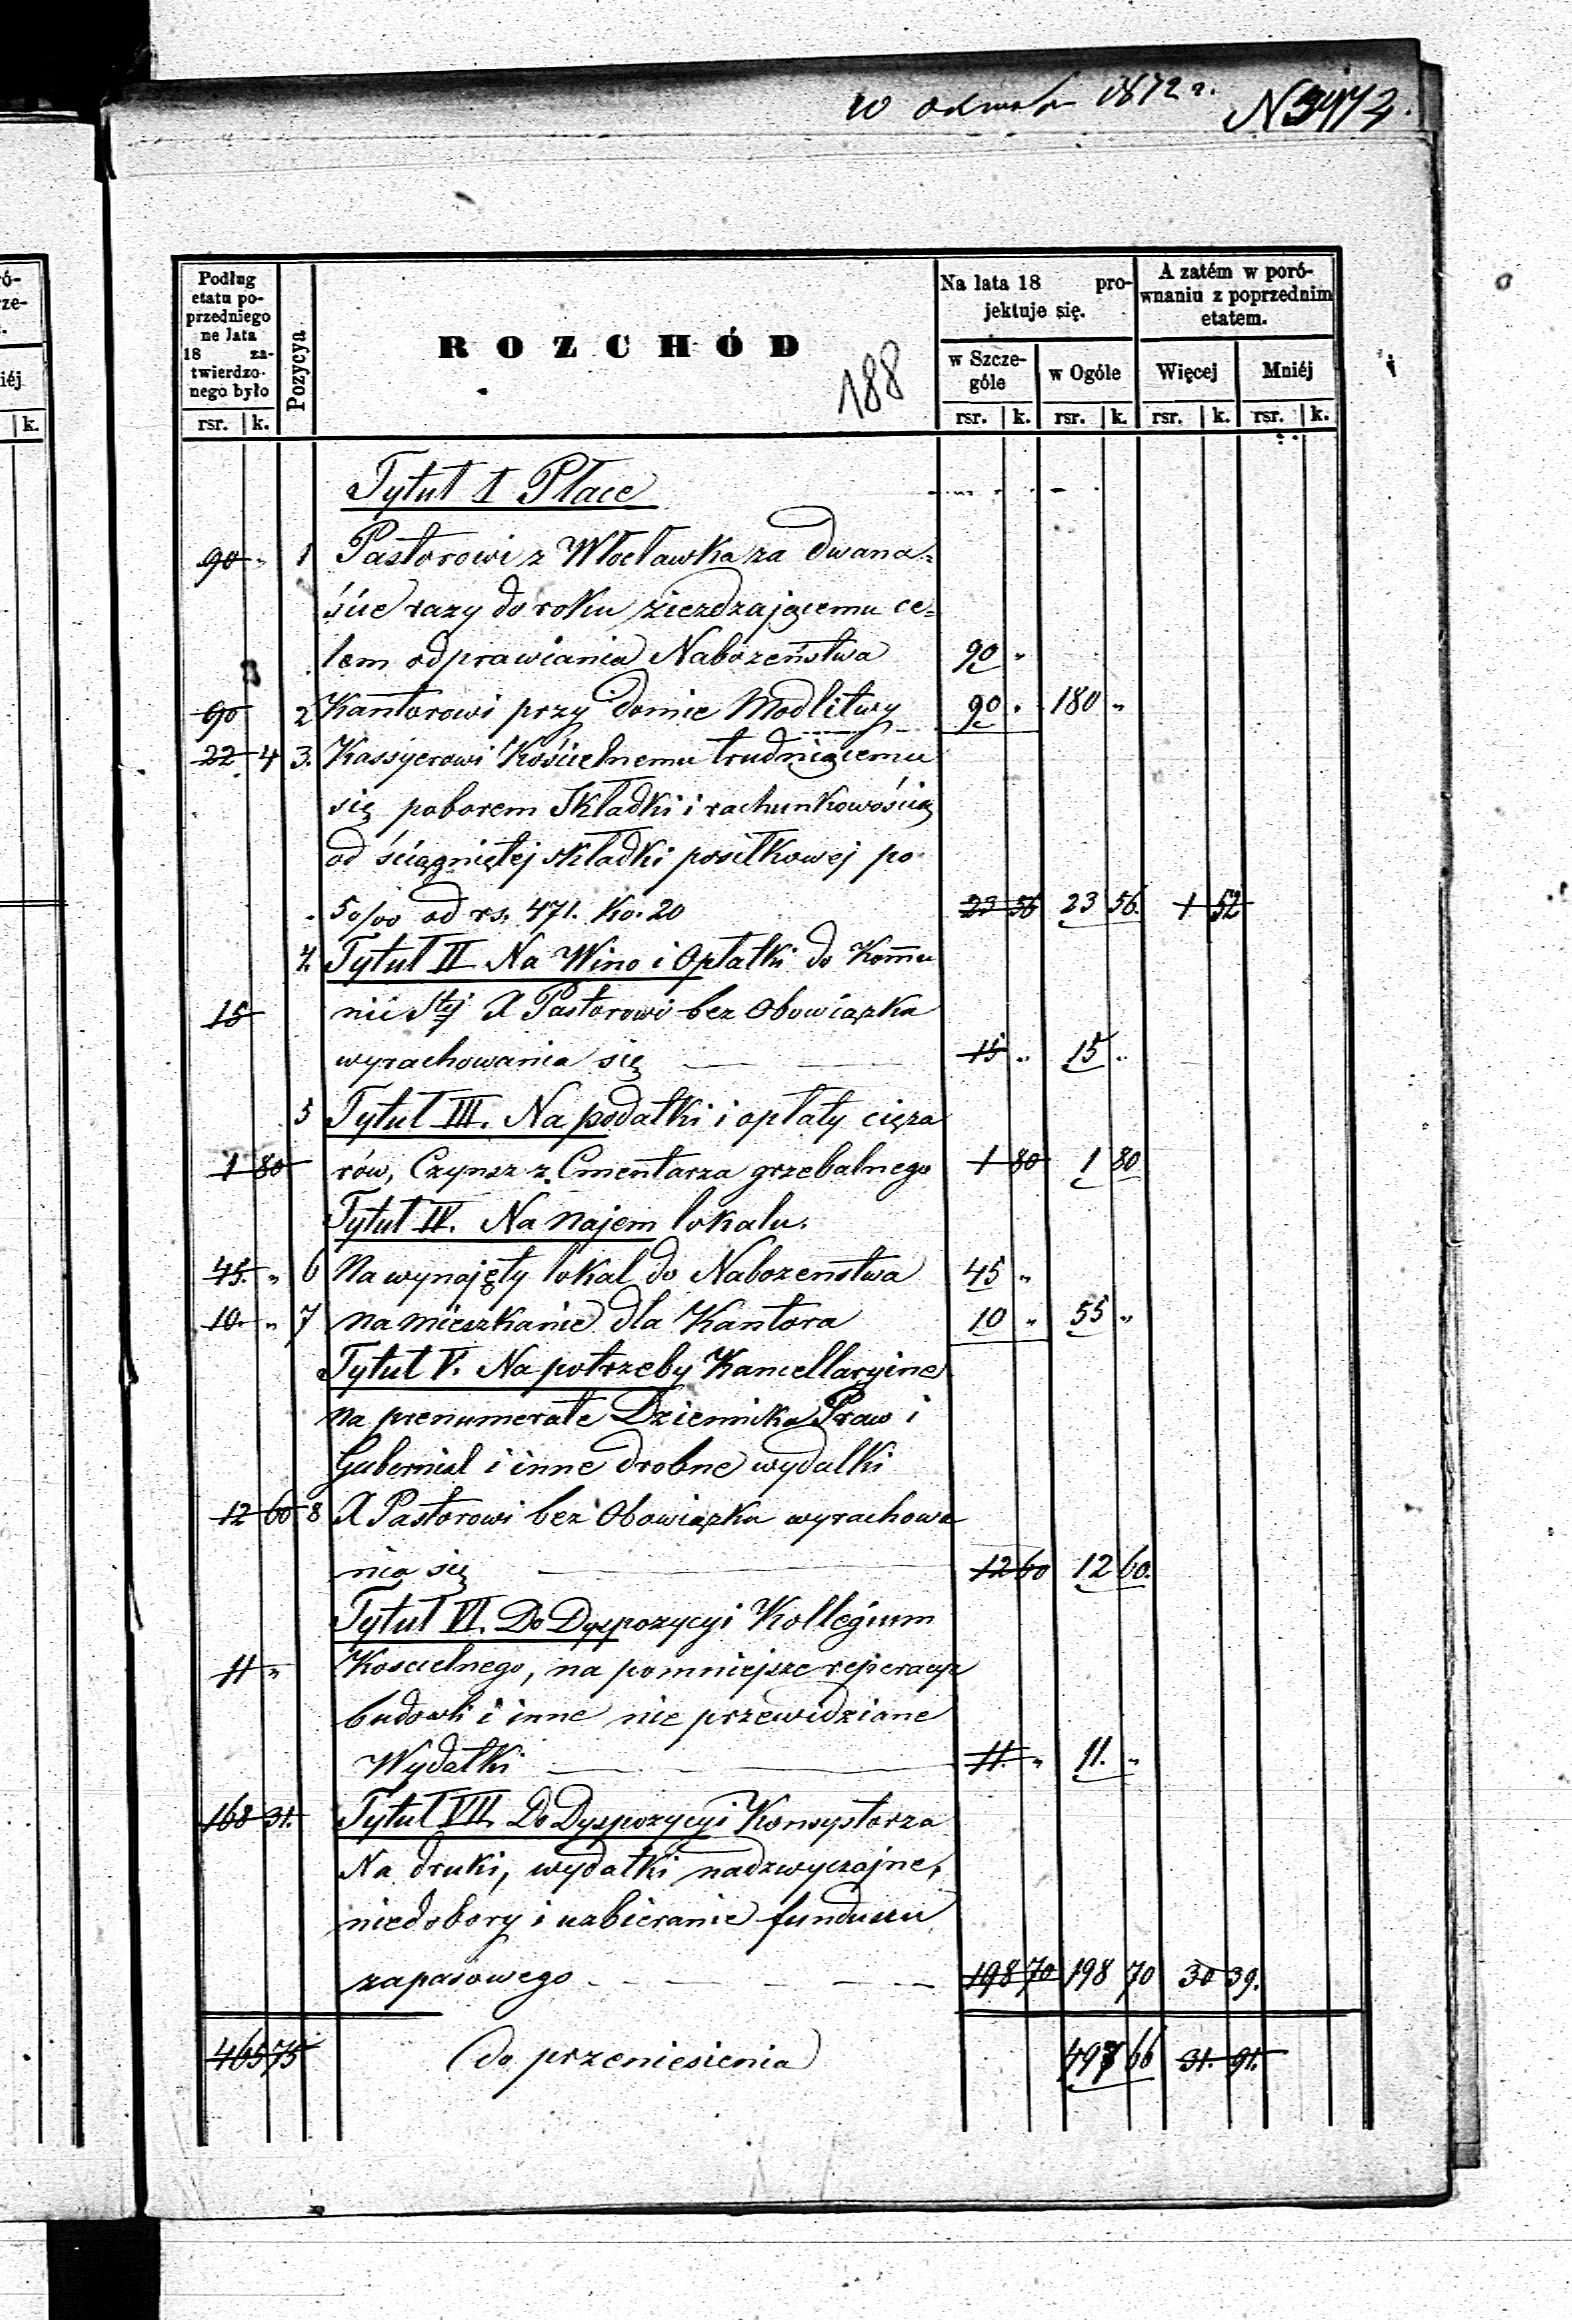 w 1872 r. N
Podług etatu poprzedniego ne lata 18 zatwierdzonego było
Pozycya
ROZCHÓD
188
Na lata 18 projektuje się.
A zatém w porównaniu z poprzednim etatem.
w Szczególe
w Ogóle
Więcej
Mniéj
rsr. k. rsr. k. rsr. k. rsr. k. rsr. k.
Tytuł I Płace
90 " 1 Pastorowi z Włocławka za dwana-
ście razy do roku ziezdzającemu ce-
lem odprawiania Nabożeństwa 90 "
90 2 Kantorowi przy domie Modlitwy 90 " 180 "
22 4 3. Kassyerowi Kościelnemu trudniącemu
się poborem Składki i rachunkowością
od ściągniętej składki posiłkowej po
5 o/oo od rs. 471. Ko. 20 23 56 23 56. 1 52
4. Tytuł II Na Wino i Opłatki do Kom̄u
15 nii Stej X Pastorowi bez Obowiązku
wyrachowania się 15 " 15 "
5 Tytuł III. Na podatki i opłaty cięża
1 80 rów, Czynsz z Cmentarza grzebalnego 1 80 1 80
Tytuł IV. Na Najem lokalu.
45. " 6 Na wynajęty lokal do Nabozenstwa 45 "
10. " 7 na mieszkanie dla Kantora 10 " 55 "
Tytuł V. Na potrzeby Kancellaryine
na prenumerate Dziennika Praw i
Gubernial i inne drobne wydatki
12 60 8 X Pastorowi bez Obowiązku wyrachowa
nia się 12 60 12 60.
Tytuł VI. Do Dyspozycyi Kollegium
11 " Koscielnego, na pomniejsze reperacye
budowli i inne nie przewidziane
Wydatki 11. " 11. "
168 31. Tytuł VII. Do Dyspozycyi Konsystorza
Na druki, wydatki nadzwyczajne,
niedobory i uzbieranie funduszu
zapasowego 198 70 198 70 30 39.
465 75 do przeniesienia 497 66 31. 91.